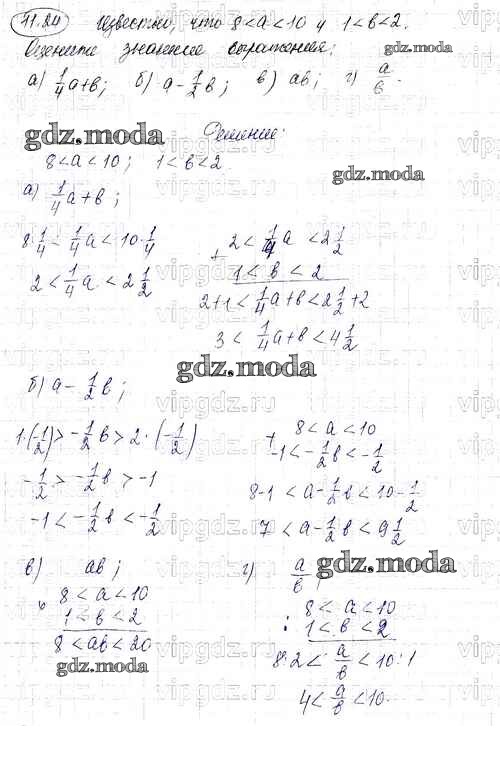 11.20 Известно, что 8<a<10 и 1<b<2.
Оцените значение выражения:
а) 1/4 a+b; б) a-1/2 b; в) ab; г) a/b.
gdz.moda
Решение:
gdz.moda
8<a<10; 1<b<2
gdz.moda
а) 1/4 a+b;
8·1/4<1/4 a<10·1/4
2<1/4 a<2 1/2
2<1/4 a<2 1/2
+
1<b<2
2+1<1/4 a+b<2 1/2+2
3<1/4 a+b<4 1/2
gdz.moda
б) a-1/2 b;
1·(-1/2)>-1/2 b>2·(-1/2)
-1/2>-1/2 b>-1
-1<-1/2 b<-1/2
8<a<10
+
-1<-1/2 b<-1/2
8-1<a-1/2 b<10-1/2
7<a-1/2 b<9 1/2
в) ab;
8<a<10
1<b<2
8<ab<20
gdz.moda
г) a/b
gdz.moda
8<a<10
:
1<b<2
8:2<a/b<10:1
4<a/b<10.
vipgdz.ru